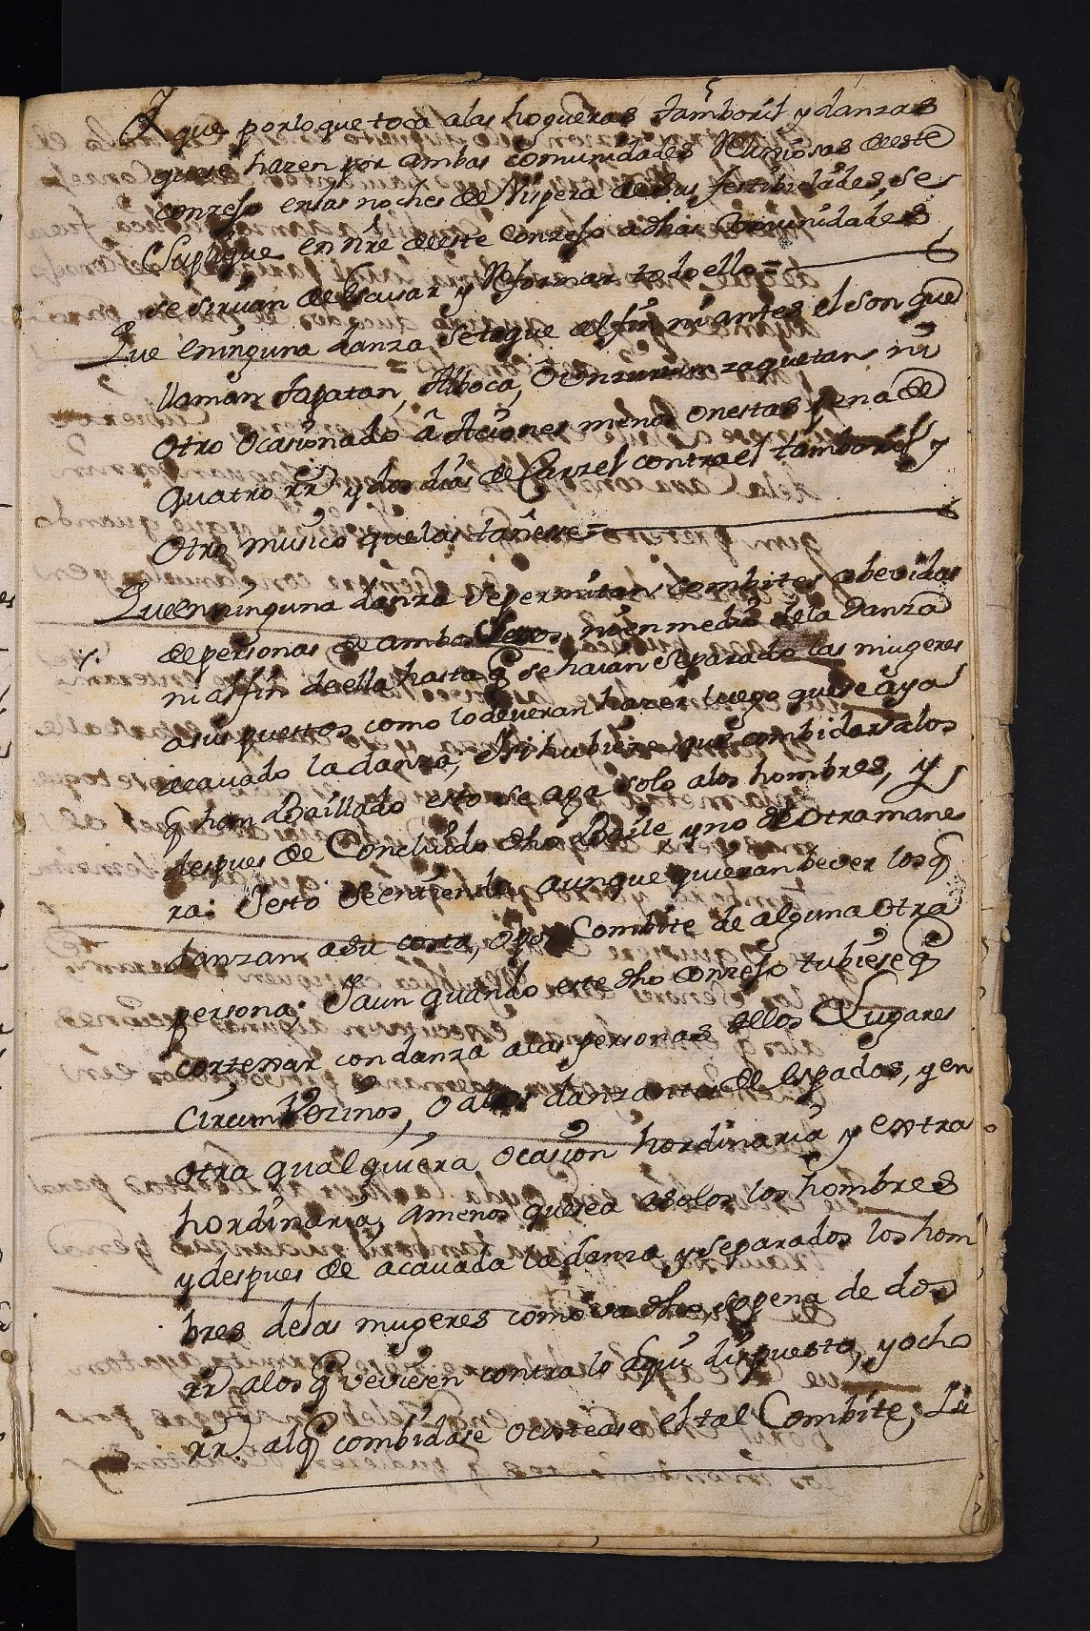 Y que por lo que toca a las hogueras tamboril y danzas
que se hazen por ambas comunidades Religiosas de este
conzejo en las noches de Vispera de sus festibidades, se
Suplique en nre de este conzejo a dhas Comunidades
se sirvan de Escusar y Reformar todo ello =
Que en ninguna danza se toque al fin ni antes el son que
llaman Sapatan, Alboca, O zaquetan ni
Otro Ocasionado â Aciones menos onestas, pena de
quatro rr.s y dos dias de Carzel contra el tamboril y
Otro musico que las tañese =
Que en ninguna danza se permitan combites a bevidas
de personas de ambos Sexos, ni en medio de la danza
ni al fin de ella hasta q se haian separado las mugeres
a sus puestos como lo deveran hazer luego que se aya
acavado la danza; Y si hubiere que combidar a los
q han Baillado esto se aga solo a los hombres, y
despues de Concluido dho Baile, y no de otra mane
ra: Y esto se entienda aunque quieran bever los q
danzan a su costa, o por Combite de alguna Otra
persona. Y aun quando este dho conzejo tubiese q
cortexar con danza a las personas de los Lugares
Circumvezinos, o a los danzantes de Espadas, y en
otra qualquiera ocasion hordinaria y extra
hordinaria, a menos que sea a solos los hombres
y despues de acavada la danza y separados los hom
bres de las mugeres como va dho, so pena de dos
rr.s a los q veviesen contra lo aqui dispuesto, y ocho
rr.s al q combidase o costease el tal Combite; Lu